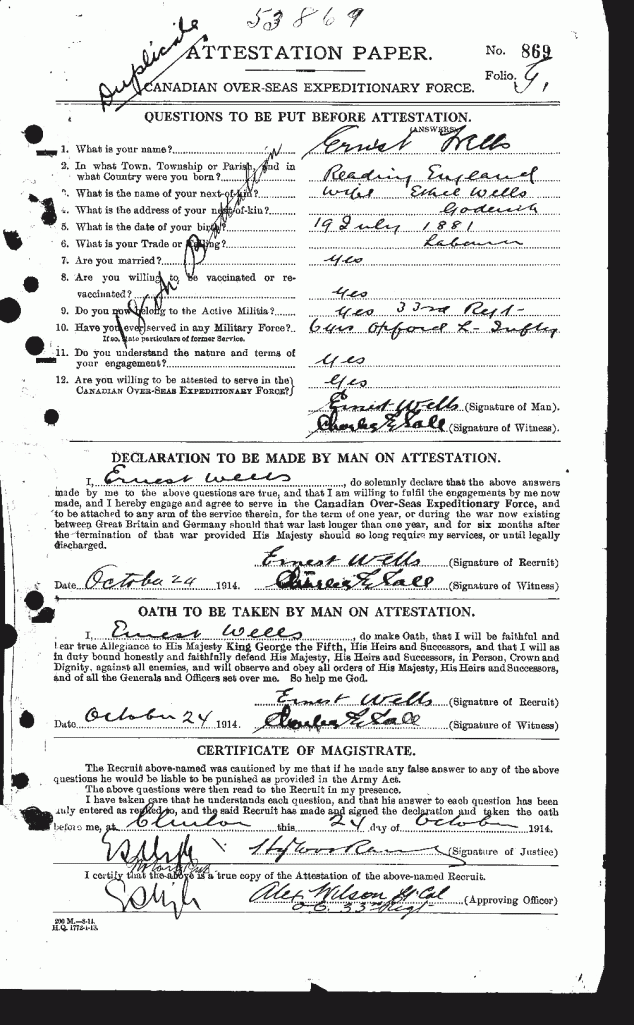 53869
Duplicate
ATTESTATION PAPER.
No. 869
Folio.
CANADIAN OVER-SEAS EXPEDITIONARY FORCE.
QUESTIONS TO BE PUT BEFORE ATTESTATION.
(ANSWERS)
1. What is your name? Ernest Wells
2. In what Town, Township or Parish, and in
what Country were you born? Reading England
3. What is the name of your next-of-kin? Wife Ethel Wells
4. What is the address of your next-of-kin? Goderich
5. What is the date of your birth? 19 July 1881
6. What is your Trade or Calling? Labourer
7. Are you married? Yes
8. Are you willing to be vaccinated or re-
vaccinated? Yes
9. Do you now belong to the Active Militia? Yes 33rd Regt
10. Have you ever served in any Military Force?
If so, state particulars of former Service.
6 yrs Oxford L. Infty
11. Do you understand the nature and terms of
your engagement? Yes
12. Are you willing to be attested to serve in the
CANADIAN OVER-SEAS EXPEDITIONARY FORCE? Yes
18th Battalion
Ernest Wells (Signature of Man).
Charles E Sall (Signature of Witness).
DECLARATION TO BE MADE BY MAN ON ATTESTATION.
I, Ernest Wells, do solemnly declare that the above answers
made by me to the above questions are true, and that I am willing to fulfil the engagements by me now
made, and I hereby engage and agree to serve in the Canadian Over-Seas Expeditionary Force, and
to be attached to any arm of the service therein, for the term of one year, or during the war now existing
between Great Britain and Germany should that war last longer than one year, and for six months after
the termination of that war provided His Majesty should so long require my services, or until legally
discharged.
Ernest Wells (Signature of Recruit)
Date October 24 1914. Charles E Sall (Signature of Witness)
OATH TO BE TAKEN BY MAN ON ATTESTATION.
I, Ernest Wells, do make Oath, that I will be faithful and
bear true Allegiance to His Majesty King George the Fifth, His Heirs and Successors, and that I will as
in duty bound honestly and faithfully defend His Majesty, His Heirs and Successors, in Person, Crown and
Dignity, against all enemies, and will observe and obey all orders of His Majesty, His Heirs and Successors,
and of all the Generals and Officers set over me. So help me God.
Ernest Wells (Signature of Recruit)
Date October 24 1914. Charles E Sall (Signature of Witness)
CERTIFICATE OF MAGISTRATE.
The Recruit above-named was cautioned by me that if he made any false answer to any of the above
questions he would be liable to be punished as provided in the Army Act.
The above questions were then read to the Recruit in my presence.
I have taken care that he understands each question, and that his answer to each question has been
duly entered as replied to, and the said Recruit has made and signed the declaration and taken the oath
before me, at Clinton this 24 day of October 1914.
(Signature of Justice)
I certify that the above is a true copy of the Attestation of the above-named Recruit.
Alex Wilson Lt Col (Approving Officer)
O.C. 33rd Regt
200 M.—8-14.
H.Q. 1772-1-13.